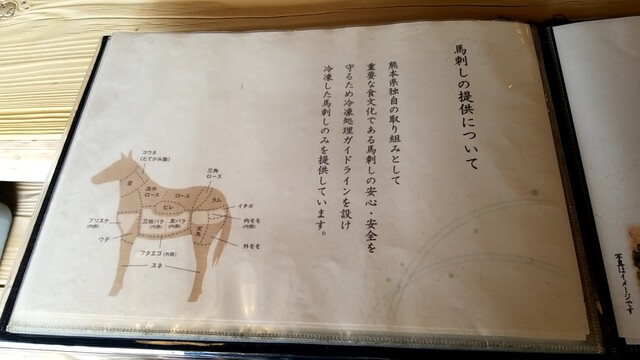 馬刺しの提供について
熊本県独自の取り組みとして
重要な食文化である馬刺しの安心・安全を
守るため冷凍処理ガイドラインを設け
冷凍した馬刺しのみを提供しています。
コウネ
(たてがみ脂)
首
肩ロース
ロース
三角
ロース
ヒレ
ラム
イチボ
ブリスケ
(内側)
三枚バラ
(内側)
友バラ
(内側)
内モモ
(内側)
外モモ
ウデ
フタエゴ(内側)
スネ
写真はイメージです